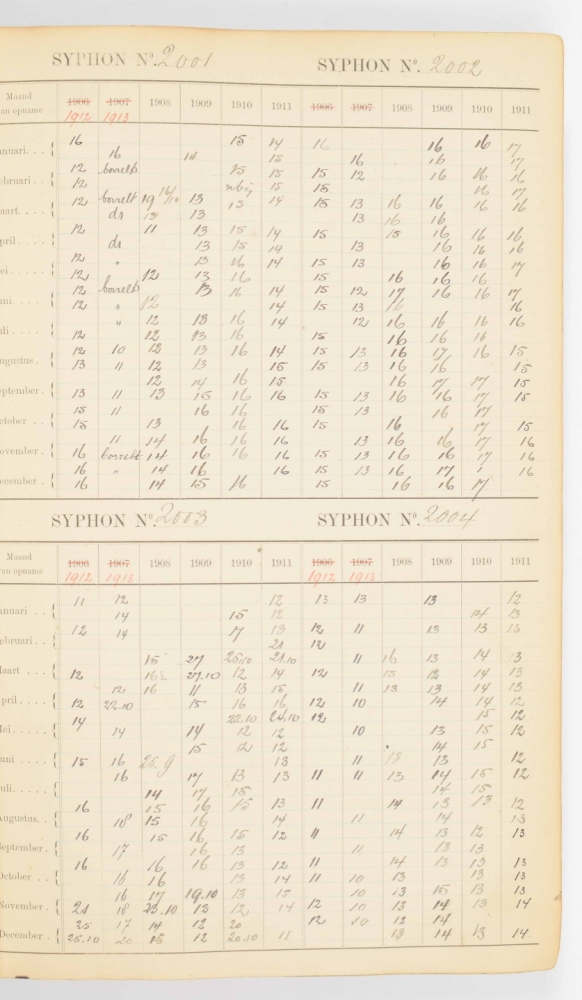 SYPHON Nº. 2001 SYPHON Nº. 2002
Maand
an opname
1906 1907 1908 1909 1910 1911 1906 1907 1908 1909 1910 1911
1912 1913
16 15 14 16 16 16 17
anuari. . .
16 14 15 16 16 17
12 borrelt 15 15 15 12 16 16 16
ebruari . .
12 15 15 16 17
12 borrelt 19 13 13 14 15 13 16 16 16 16
aart. . . .
dr 13 13 13 16 16
12 11 13 15 14 15 15 16 16 16
pril . . . .
dr 13 15 14 13 16 16 16
12 " 13 16 14 15 13 16 16 17
ei . . . .
12 12 13 16 15 16 16 16
12 borrelt 13 16 14 15 12 17 16 16 17
uni. . . .
12 " 12 14 15 13 16 16
" 12 13 16 14 12 16 16 16 16
uli. . . .
12 12 13 16 15 16 16 16
12 10 12 13 16 14 15 13 16 17 16 15
ugustus .
13 11 12 13 15 15 13 16 16 15
12 14 16 15 16 17 17 15
eptember.
13 11 13 15 16 16 15 13 16 16 17 15
15 11 16 16 15 13 16 17
ctober . .
15 13 16 16 15 16 17 15
11 14 16 16 16 13 16 16 17 16
ovember .
16 borrelt 14 16 16 16 15 13 16 16 17 16
16 " 14 16 16 15 13 16 17 16
ecember .
16 14 15 16 15 16 16 17
SYPHON Nº. 2003 SYPHON Nº. 2004
Maand
an opname
1906 1907 1908 1909 1910 1911 1906 1907 1908 1909 1910 1911
1912 1913 1912 1913
11 12 12 13 13 13 12
anuari . .
14 15 12 14 13
12 14 17 13 12 11 13 13 13
ebruari . .
21 12
15 27 25.10 21.10 11 16 13 14 13
aart . . .
12 16 27.10 12 14 12 15 12 14 13
12 16 11 13 15 11 13 13 14 13
pril . . . .
12 22.10 15 16 16 12 10 14 14 12
14 22.10 24.10 12 15 12
ei. . . .
14 14 12 12 10 13 15 12
15 12 12 14 15
uni . . .
15 16 25.9 13 11 18 13 12
16 17 13 13 11 11 13 14 15 12
uli. . . .
14 17 15 14 15
16 15 16 15 13 11 14 13 13 12
ugustus. .
18 15 16 14 11 14 13
16 15 16 15 12 11 14 13 12 13
eptember.
17 16 13 11 13 13
16 16 16 13 12 11 14 13 13 13
ctober . .
16 16 13 14 11 10 13 13 13
16 17 19.10 13 15 10 13 15 13 13
November .
21 18 23.10 12 12 14 12 10 13 14 13 14
25 17 14 12 20 12 10 13 14
December .
25.10 20 15 12 20.10 11 13 14 13 14